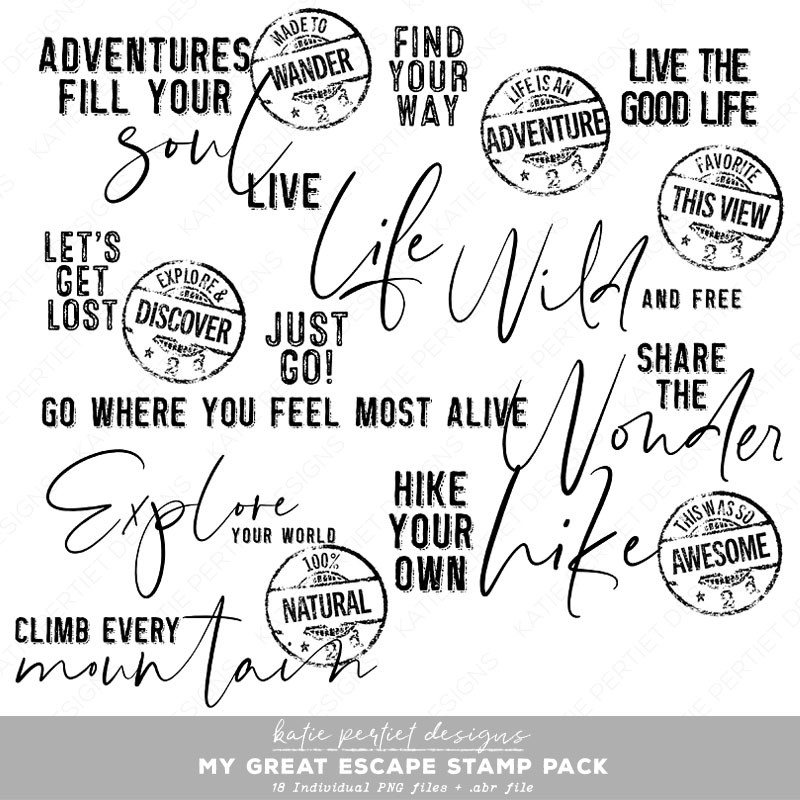 ADVENTURES
FILL YOUR
soul
MADE TO
WANDER
* 2 3
FIND
YOUR
WAY
LIFE IS AN
ADVENTURE
* 2 3
LIVE THE
GOOD LIFE
LIVE
Life Wild
AND FREE
FAVORITE
THIS VIEW
* 2 3
LET'S
GET
LOST
EXPLORE &
DISCOVER
* 2 3
JUST
GO!
SHARE
THE
Wonder
GO WHERE YOU FEEL MOST ALIVE
Explore
YOUR WORLD
HIKE
YOUR
OWN
hike
THIS WAS SO
AWESOME
* 2 3
100%
NATURAL
* 2 3
CLIMB EVERY
mountain
katie pertiet designs
MY GREAT ESCAPE STAMP PACK
18 Individual PNG files + .abr file